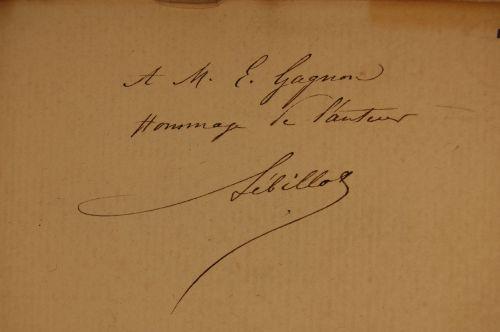 A M. E. Gagnon
Hommage de l'auteur
Sébillot